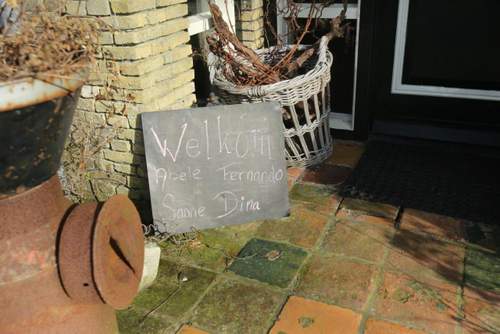 Welkom
Abele Fernando
Sanne Dina